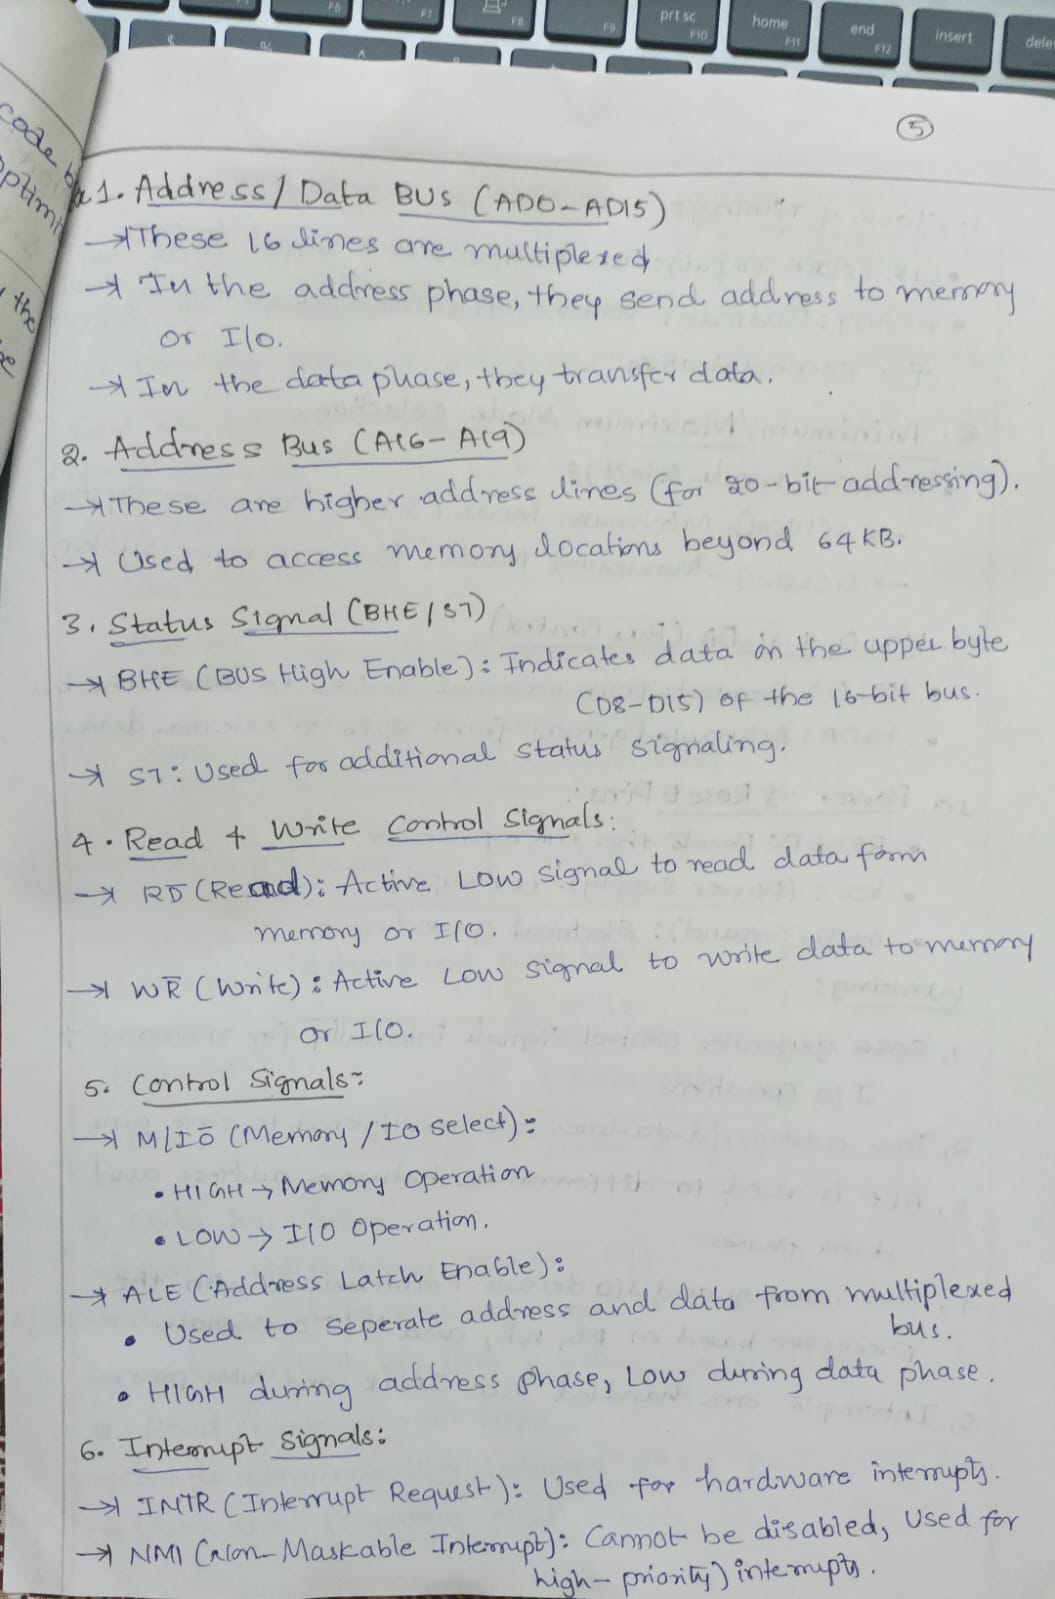 prt sc
F6
F7
F8
F9
F10
home
F11
end
F12
insert
$
%
^
5
code
the
1. Address / Data BUS (AD0-AD15)
→ These 16 lines are multiplexed
→ In the address phase, they send address to memory
or I/O.
→ In the data phase, they transfer data.
2. Address Bus (A16-A19)
→ These are higher address lines (for 20-bit addressing).
→ Used to access memory locations beyond 64KB.
3. Status Signal (BHE/S7)
→ BHE (BUS High Enable): Indicates data on the upper byte
(D8-D15) of the 16-bit bus.
→ S7: Used for additional status signaling.
4. Read & Write Control Signals:
→ R̅D̅ (Read): Active Low signal to read data form
memory or I/O.
→ WR̅ (Write): Active Low signal to write data to memory
or I/O.
5. Control Signals:
→ M/IO̅ (Memory / IO select):
• HIGH → Memory Operation
• LOW → I/O Operation.
→ ALE (Address Latch Enable):
• Used to seperate address and data from multiplexed
bus.
• HIGH during address phase, Low during data phase.
6. Interrupt Signals:
→ INTR (Interrupt Request): Used for hardware interrupts.
→ NMI (Non-Maskable Interrupt): Cannot be disabled, Used for
high-priority) interrupts.